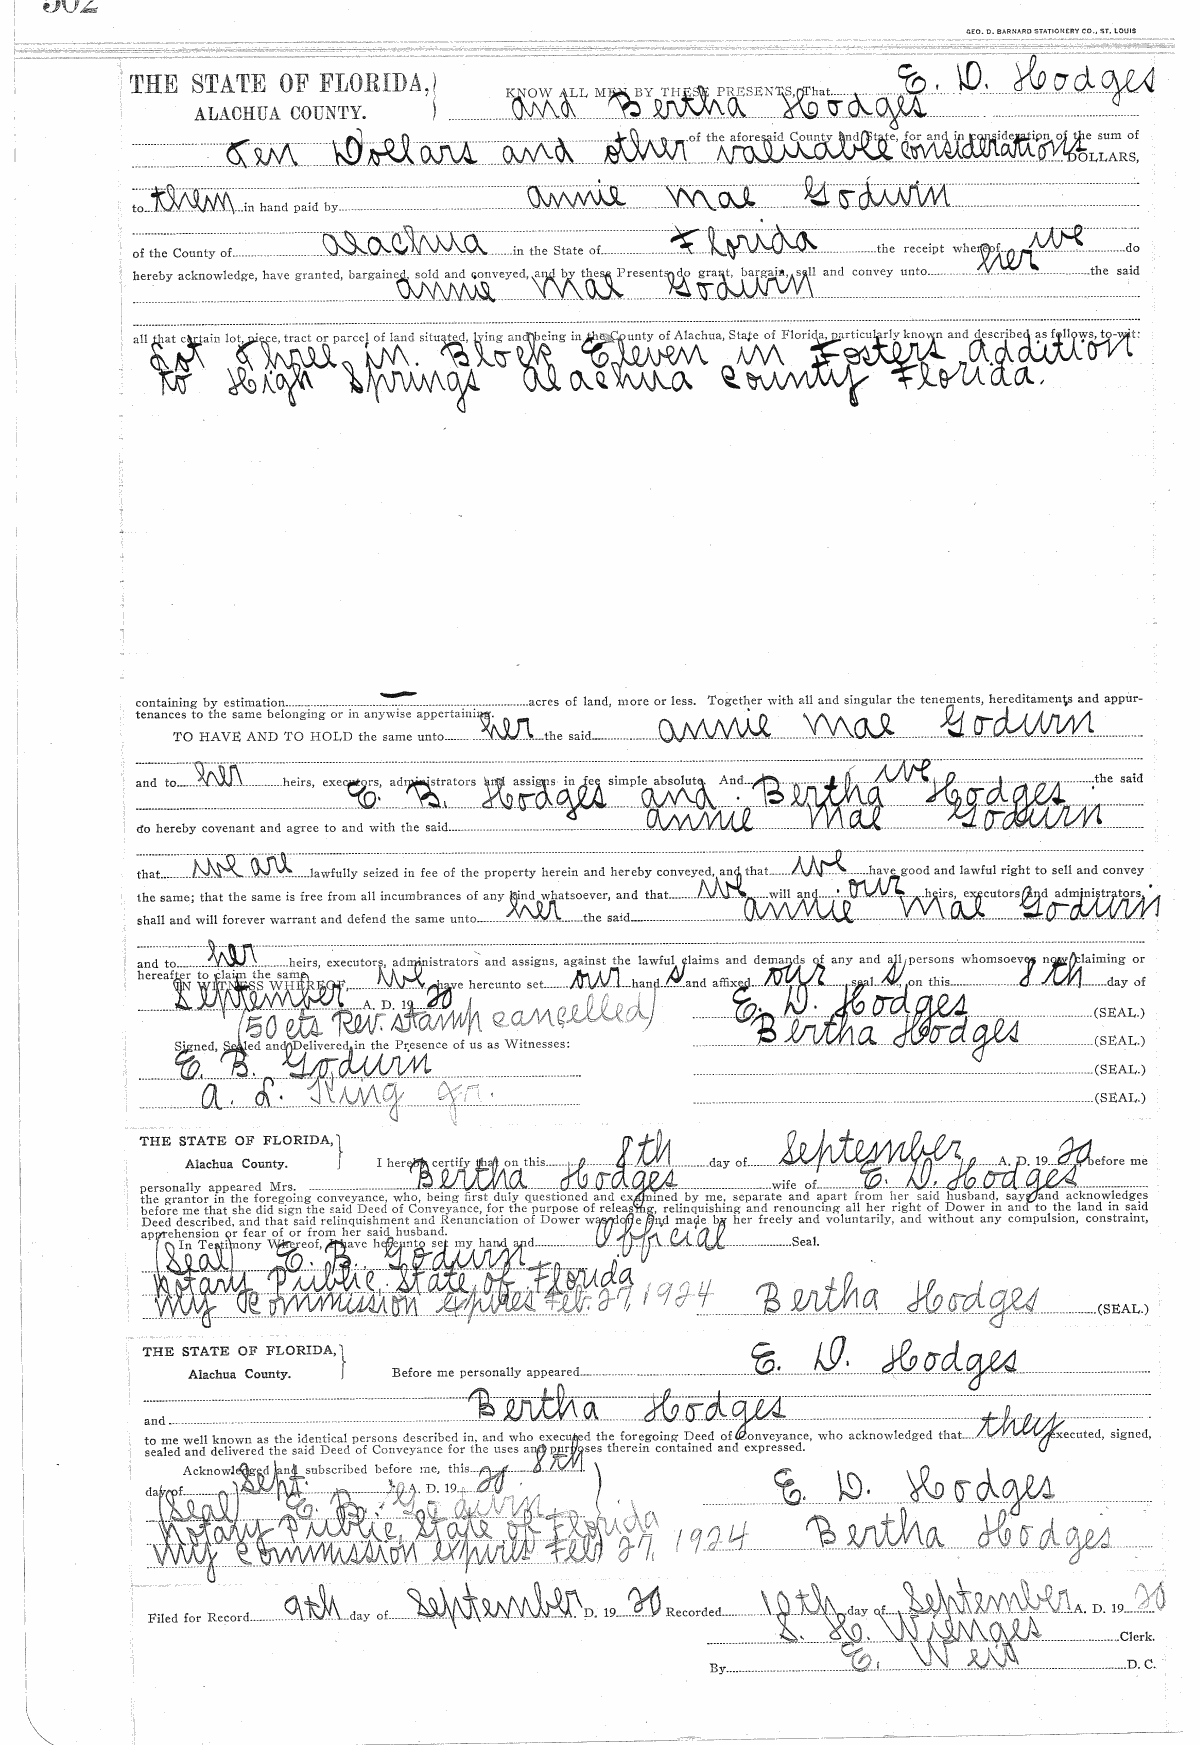 302
GEO. D. BARNARD STATIONERY CO., ST. LOUIS
THE STATE OF FLORIDA,
ALACHUA COUNTY.
KNOW ALL MEN BY THESE PRESENTS, That E. D. Hodges
and Bertha Hodges
of the aforesaid County and State, for and in consideration of the sum of
Ten Dollars and other valuable considerations DOLLARS,
to them in hand paid by Annie Mae Godwin
of the County of Alachua in the State of Florida the receipt whereof we do
hereby acknowledge, have granted, bargained, sold and conveyed, and by these Presents do grant, bargain, sell and convey unto her the said
Annie Mae Godwin
all that certain lot, piece, tract or parcel of land situated, lying and being in the County of Alachua, State of Florida, particularly known and described as follows, to-wit:
Lot Three in. Block Eleven in Fosters addition
to High Springs Alachua County Florida.
containing by estimation — acres of land, more or less. Together with all and singular the tenements, hereditaments and appur-
tenances to the same belonging or in anywise appertaining.
TO HAVE AND TO HOLD the same unto her the said Annie Mae Godwin
and to her heirs, executors, administrators and assigns in fee simple absolute. And we the said
E. B. Hodges and Bertha Hodges
do hereby covenant and agree to and with the said Annie Mae Godwin
that we are lawfully seized in fee of the property herein and hereby conveyed, and that we have good and lawful right to sell and convey
the same; that the same is free from all incumbrances of any kind whatsoever, and that we will and our heirs, executors and administrators,
shall and will forever warrant and defend the same unto her the said Annie Mae Godwin
and to her heirs, executors, administrators and assigns, against the lawful claims and demands of any and all persons whomsoever now claiming or
hereafter to claim the same.
IN WITNESS WHEREOF, We have hereunto set our hand s and affixed our seal s, on this 8th day of
September A. D. 19 20 E. D. Hodges (SEAL.)
(50 cts Rev. stamp cancelled) Bertha Hodges (SEAL.)
Signed, Sealed and Delivered in the Presence of us as Witnesses:
E. B. Godwin (SEAL.)
A. L. King Jr. (SEAL.)
THE STATE OF FLORIDA,
Alachua County.
I hereby certify that on this 8th day of September A. D. 19 20 before me
personally appeared Mrs. Bertha Hodges wife of E. D. Hodges
the grantor in the foregoing conveyance, who, being first duly questioned and examined by me, separate and apart from her said husband, says and acknowledges
before me that she did sign the said Deed of Conveyance, for the purpose of releasing, relinquishing and renouncing all her right of Dower in and to the land in said
Deed described, and that said relinquishment and Renunciation of Dower was done and made by her freely and voluntarily, and without any compulsion, constraint,
apprehension or fear of or from her said husband.
In Testimony Whereof, I have hereunto set my hand and Official Seal.
(Seal) E. B. Godwin
Notary Public, State of Florida
My Commission expires Feb. 27, 1924 Bertha Hodges (SEAL.)
THE STATE OF FLORIDA,
Alachua County.
Before me personally appeared E. D. Hodges
and Bertha Hodges
to me well known as the identical persons described in, and who executed the foregoing Deed of Conveyance, who acknowledged that they executed, signed,
sealed and delivered the said Deed of Conveyance for the uses and purposes therein contained and expressed.
Acknowledged and subscribed before me, this 8th
day of Sept. A. D. 19 20 E. D. Hodges
(Seal) E. B. Godwin
Notary Public, State of Florida Bertha Hodges
My Commission expires Feb 27, 1924
Filed for Record 9th day of September D. 19 20 Recorded 10th day of September A. D. 19 20
S. H. Wienges Clerk.
By E. D. C.